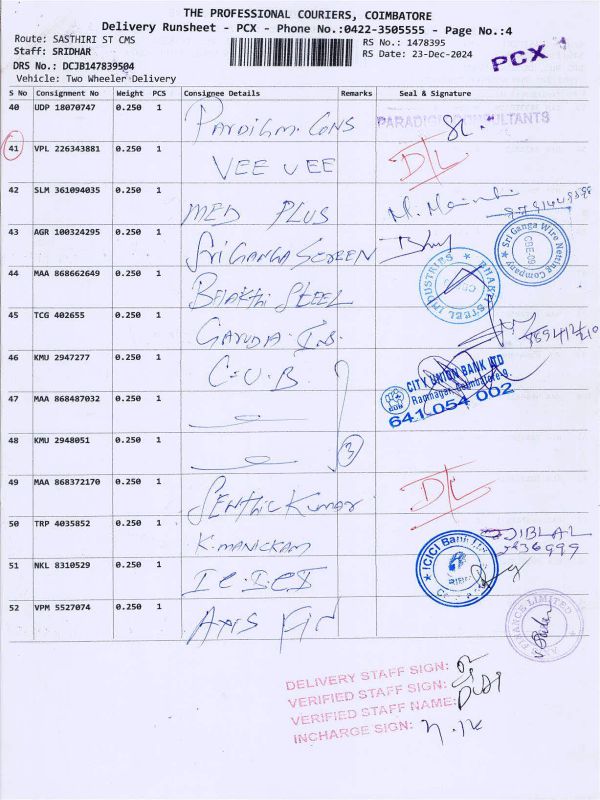 THE PROFESSIONAL COURIERS, COIMBATORE
Delivery Runsheet - PCX - Phone No.:0422-3505555 - Page No.:4
Route: SASTHIRI ST CMS
RS No.: 1478395
Staff: SRIDHAR
RS Date: 23-Dec-2024
PCX
DRS No.: DCJB147839504
Vehicle: Two Wheeler Delivery
S No Consignment No Weight PCS Consignee Details Remarks Seal & Signature
40 UDP 18070747 0.250 1 Paradigm. Cons PARADIGM CONSULTANTS
41 VPL 226343881 0.250 1 VEE VEE D/L
42 SLM 361094035 0.250 1 MED PLUS
43 AGR 100324295 0.250 1 Sri GANGA SCREEN Sri Ganga Wire Netting Company CBE-09
44 MAA 868662649 0.250 1 Bhakthi STEEL BHAKTHI STEEL INDUSTRIES
45 TCG 402655 0.250 1 GARUDA
46 KMU 2947277 0.250 1 C.U.B. CITY UNION BANK LTD
Ramnagar, Coimbatore-9.
641 054 002
47 MAA 868487032 0.250 1
48 KMU 2948051 0.250 1 3
49 MAA 868372170 0.250 1 Senthil Kumar D/L
50 TRP 4035852 0.250 1 K. MANICKAM
51 NKL 8310529 0.250 1 ICICI ICICI Bank Ltd
52 VPM 5527074 0.250 1 AXIS FIN FINANCE LIMITED
DELIVERY STAFF SIGN:
VERIFIED STAFF SIGN:
VERIFIED STAFF NAME:
INCHARGE SIGN: